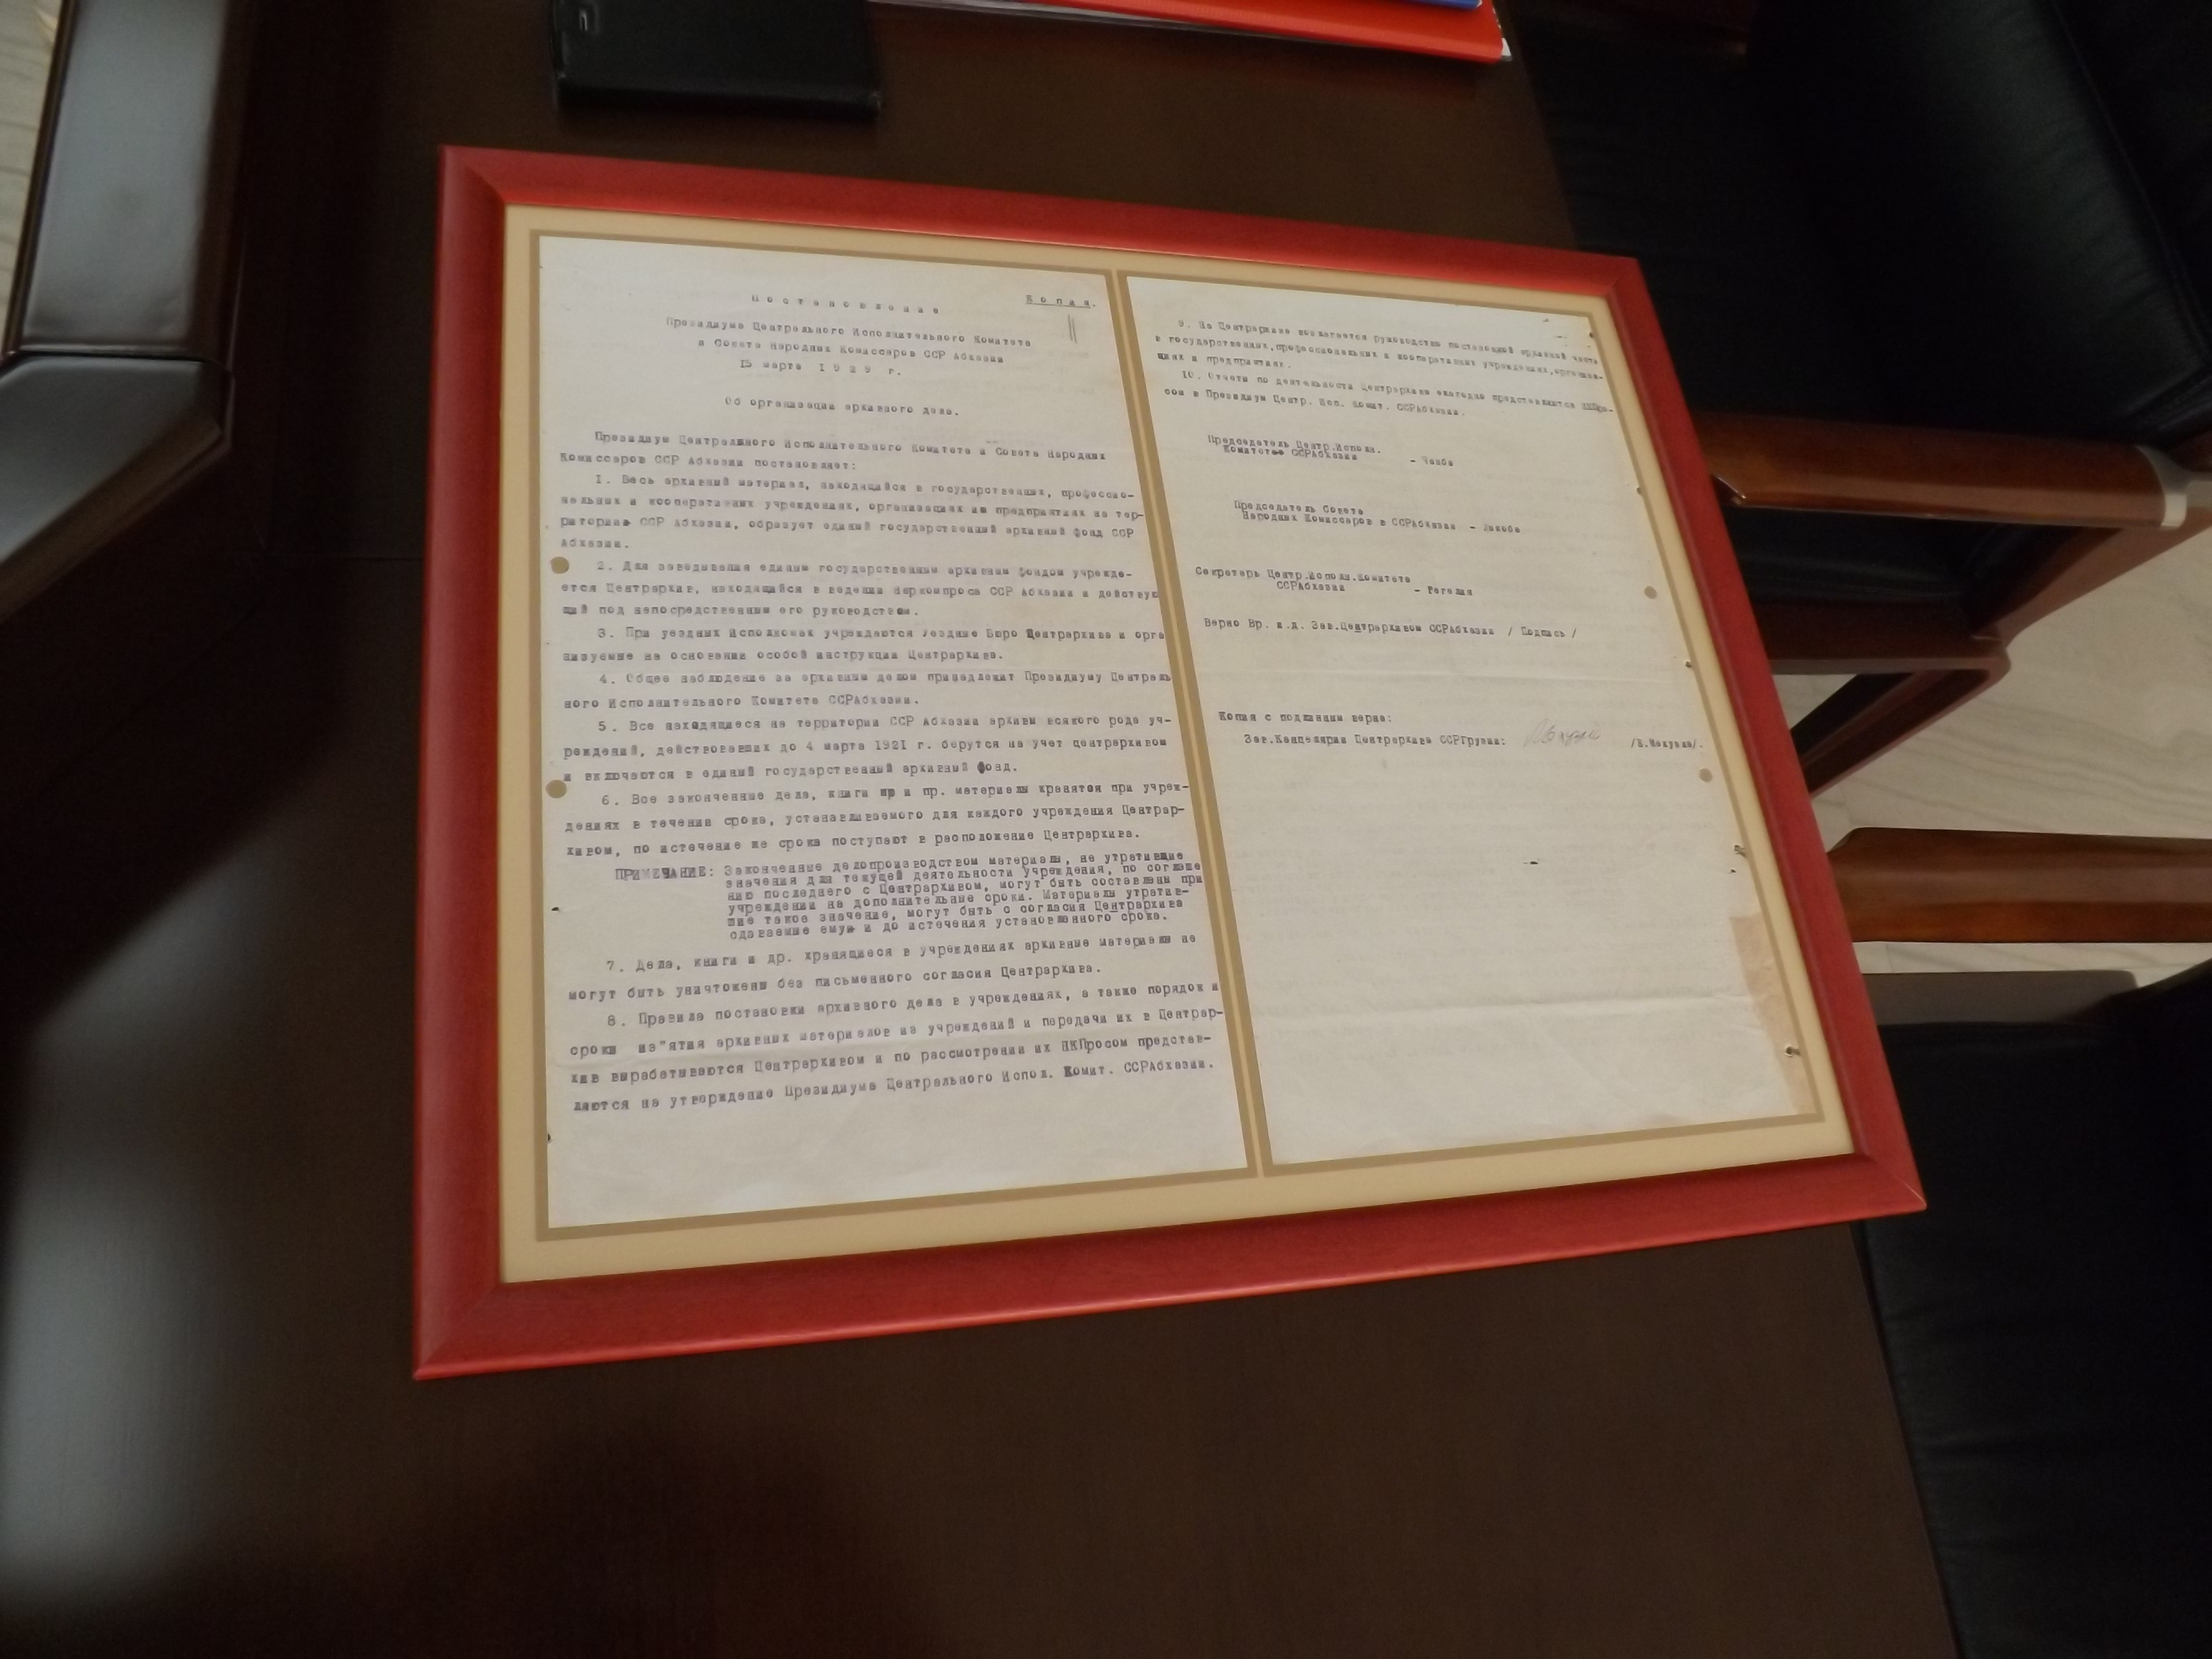 Копия.
Постановление
Президиума Центрального Исполнительного Комитета
и Совета Народных Комиссаров ССР Абхазии
15 марта 1929 г.
Об организации архивного дела.
Президиум Центрального Исполнительного Комитета и Совета Народных
Комиссаров ССР Абхазии постановляет:
1. Весь архивный материал, находящийся в государственных, профессио-
нальных и кооперативных учреждениях, организациях ни предприятиях на тер-
ритории ССР Абхазии, образует единый государственный архивный фонд ССР
Абхазии.
2. Для заведывания единым государственным архивным фондом учрежда-
ется Центрархив, находящийся в ведении Наркомпроса ССР Абхазии и действую
щий под непосредственным его руководством.
3. При уездных Исполкомах учреждаются Уездные Бюро Центрархива и орга
низуемые на основании особой инструкции Центрархива.
4. Общее наблюдение за архивным делом принадлежит Президиуму Централь
ного Исполнительного Комитета ССРАбхазии.
5. Все находящиеся на территории ССР Абхазии архивы всякого рода уч-
реждений, действовавших до 4 марта 1921 г. берутся на учет центрархивом
и включаются в единый государственный архивный фонд.
6. Все законченные дела, книги и пр. материалы хранятся при учреж-
дениях в течение срока, устанавливаемого для каждого учреждения Центрар-
хивом, по истечение же срока поступают в расположение Центрархива.
ПРИМЕЧАНИЕ: Законченные делопроизводством материалы, не утратившие
значения для текущей деятельности учреждения, по соглаше
нию последнего с Центрархивом, могут быть составлены при
учреждении на дополнительные сроки. Материалы утратив-
шие такое значение, могут быть с согласия Центрархива
сдаваемые ему и до истечения установленного срока.
7. Дела, книги и др. хранящиеся в учреждениях архивные материалы не
могут быть уничтожены без письменного согласия Центрархива.
8. Правила постановки архивного дела в учреждениях, а также порядок и
сроки из"ятия архивных материалов из учреждений и передачи их в Центрар-
хив вырабатываются Центрархивом и по рассмотрении их НКПросом представ-
ляются на утверждение Президиума Центрального Испол. Комит. ССРАбхазии.
9. На Центрархив возлагается руководство постановкой архивной части
в государственных, профессиональных и кооперативных учреждениях, организа-
циях и предприятиях.
10. Отчеты по деятельности Центрархива ежегодно представляются НКПро-
сом в Президиум Центр. Исп. Комит. ССРАбхазии.
Председатель Центр.Исполн.
Комитета ССРАбхазии - Чанба
Председатель Совета
Народных Комиссаров в ССРАбхазии - Лакоба
Секретарь Центр.Исполн.Комитета
ССРАбхазии - Рогелия
Верно Вр. и.д. Зав.Центрархивом ССРАбхазии / Подпись /
Копия с подлинным верна:
Зав.Канцелярии Центрархива ССРГрузии: